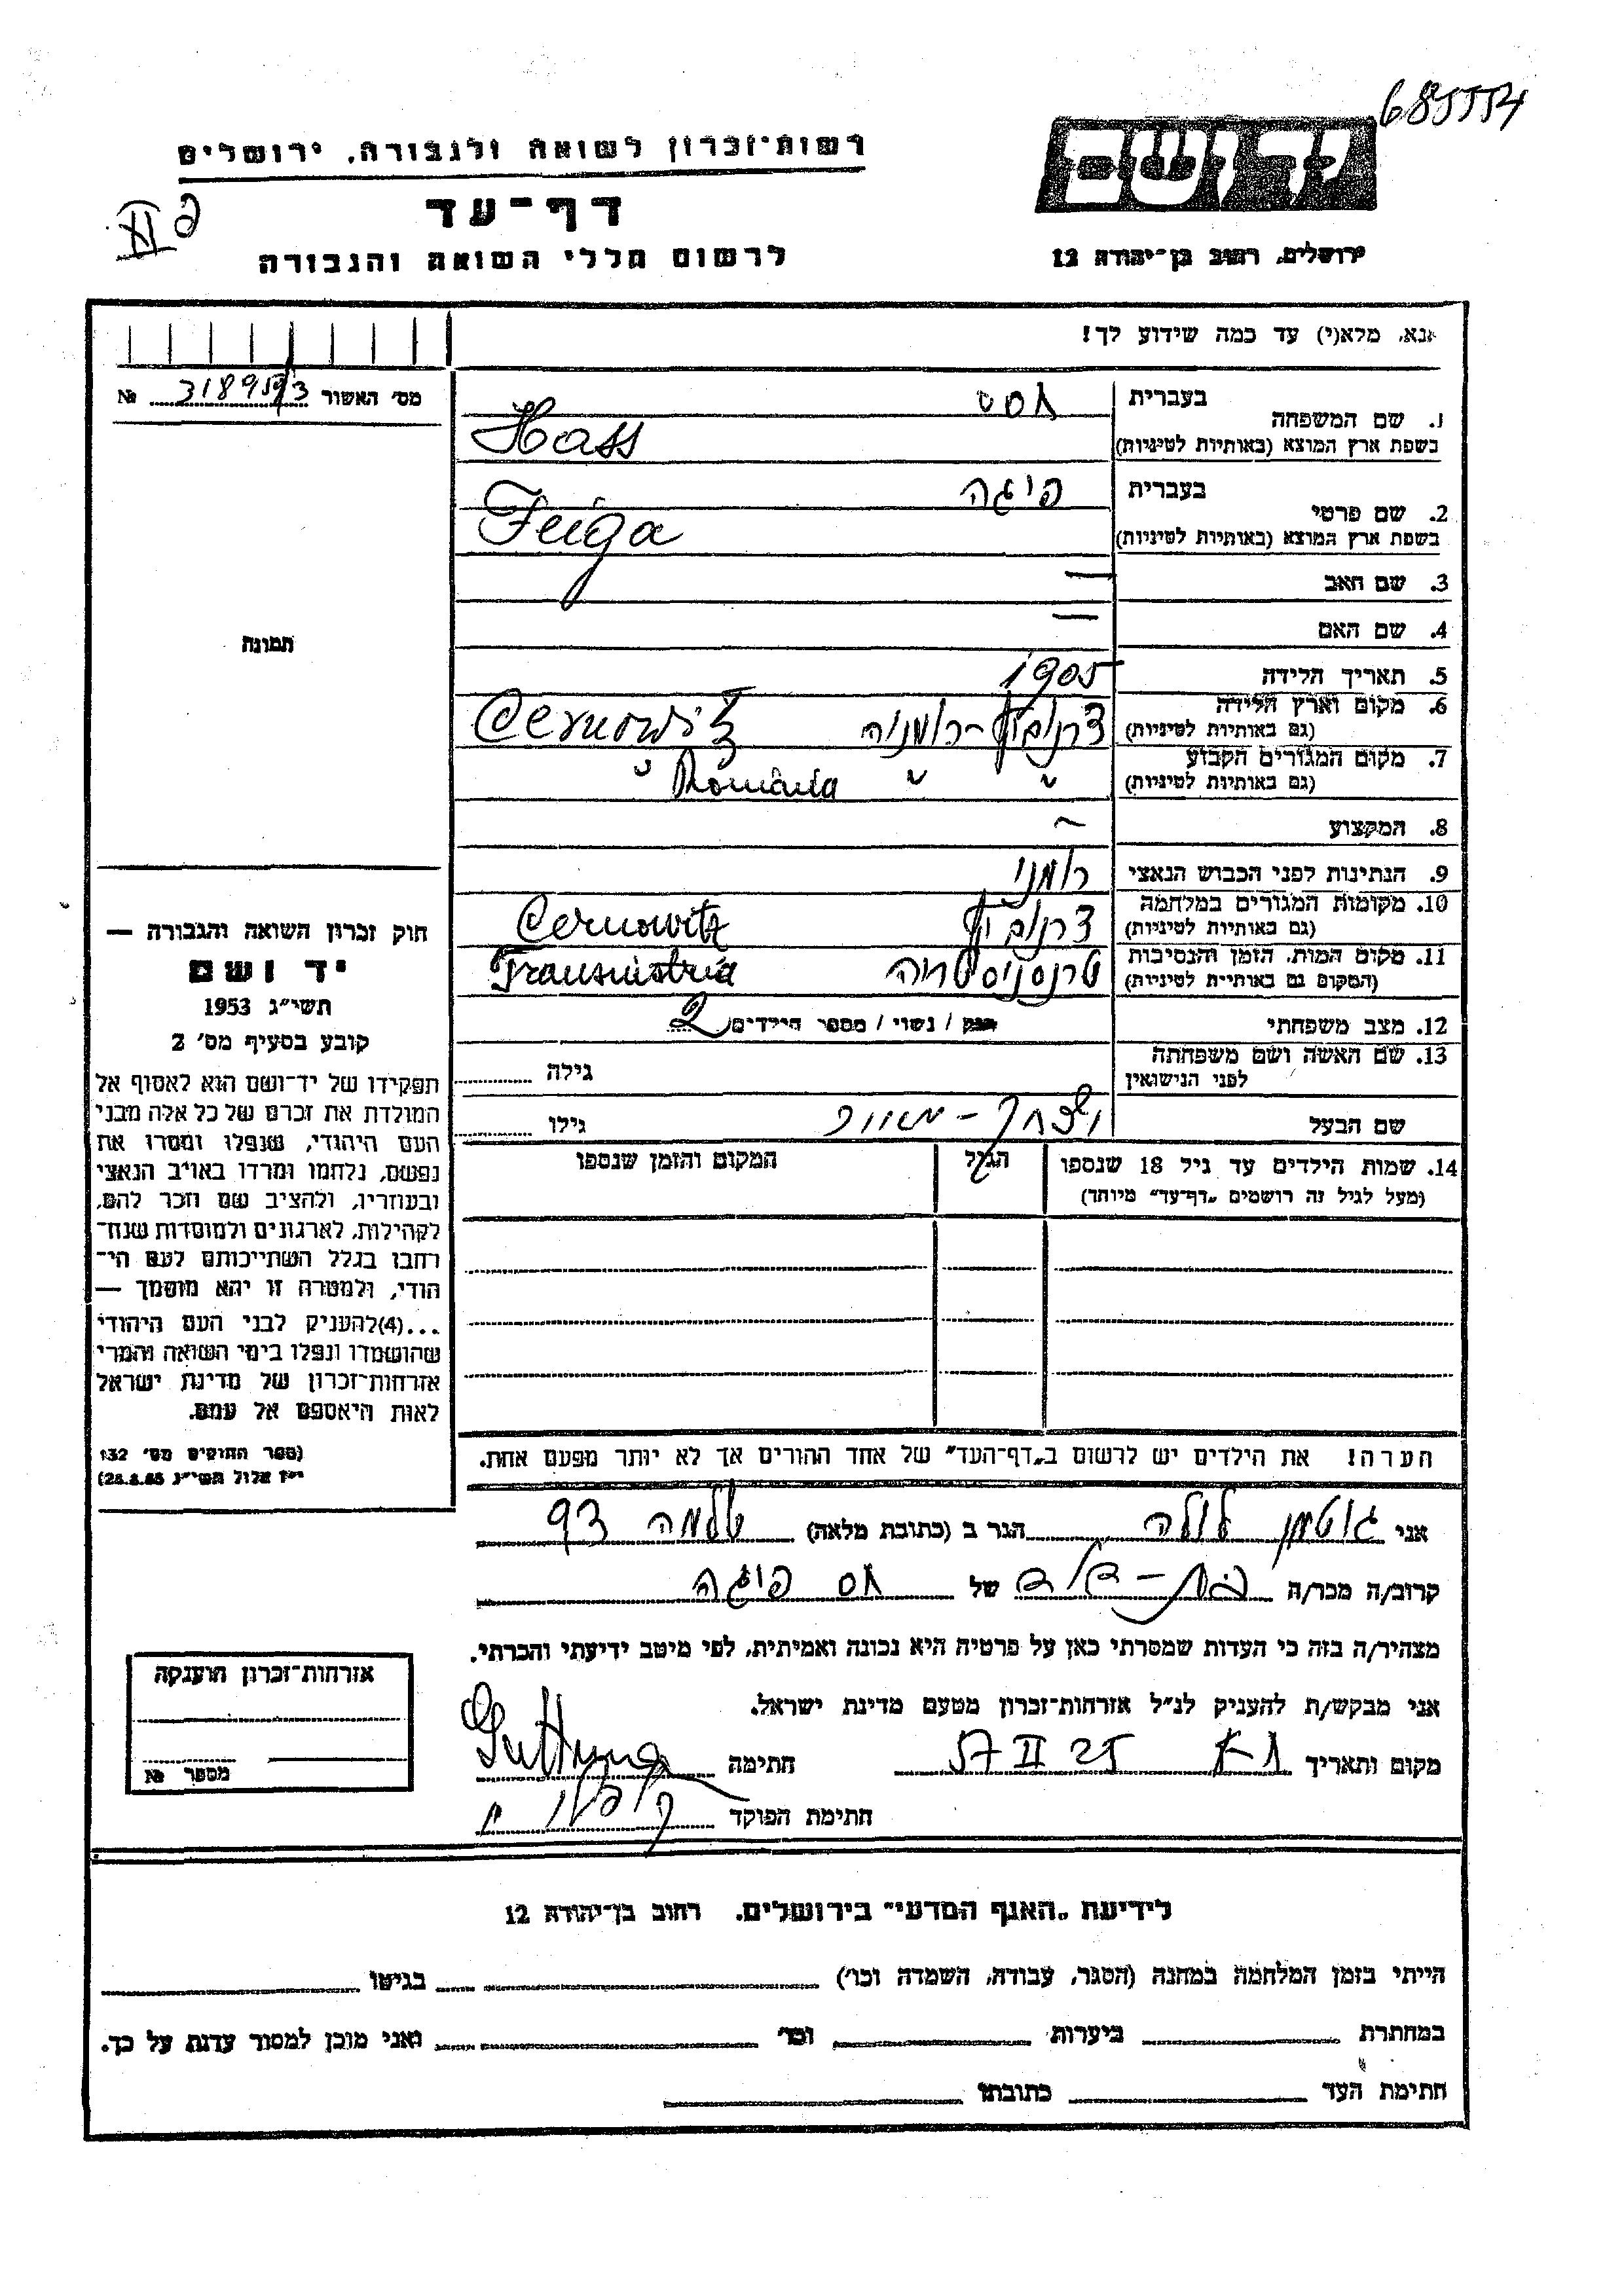 685554
רשות-זכרון לשואה ולגבורה, ירושלים
יד ושם
דף-עד
לרשום חללי השואה והגבורה
ירושלים, רחוב בן-יהודה 12
אנא, מלא(י) עד כמה שידוע לך!
מס' האשור 3189593 №
תמונה
1. שם המשפחה
בעברית
בשפת ארץ המוצא (באותיות לטיניות) Hass
2. שם פרטי
בעברית פיגה
בשפת ארץ המוצא (באותיות לטיניות) Feiga
3. שם האב —
4. שם האם —
5. תאריך הלידה 1905
6. מקום וארץ הלידה
(גם באותיות לטיניות) צרנוביץ - רומניה Cernowitz
7. מקום המגורים הקבוע
(גם באותיות לטיניות) " " România "
8. המקצוע ~
9. הנתינות לפני הכבוש הנאצי רומני
10. מקומות המגורים במלחמה
(גם באותיות לטיניות) צרנוביץ Cernowitz
11. מקום המות, הזמן והנסיבות
(המקום גם באותיות לטיניות) טרנסניסטריה Transnistria
12. מצב משפחתי רווק / נשוי / מספר הילדים 2
13. שם האשה ושם משפחתה
לפני הנישואין גילה
שם הבעל גילו
14. שמות הילדים עד גיל 18 שנספו הגיל המקום והזמן שנספו
(מעל לגיל זה רושמים „דף-עד" מיוחד)
הערה! את הילדים יש לרשום ב„דף-העד" של אחד ההורים אך לא יותר מפעם אחת.
חוק זכרון השואה והגבורה —
יד ושם
תשי"ג 1953
קובע בסעיף מס' 2
תפקידו של יד-ושם הוא לאסוף אל
המולדת את זכרם של כל אלה מבני
העם היהודי, שנפלו ומסרו את
נפשם, נלחמו ומרדו באויב הנאצי
ובעוזריו, ולהציב שם וזכר להם,
לקהילות, לארגונים ולמוסדות שנח-
רבו בגלל השתייכותם לעם הי-
הודי, ולמטרה זו יהא מוסמך —
...(4)להעניק לבני העם היהודי
שהושמדו ונפלו בימי השואה והמרי
אזרחות-זכרון של מדינת ישראל
לאות היאספם אל עמם.
(ספר החוקים מס' 132
י"ז אלול תשי"ג 28.8.53)
אני גוטמן לולה הגר ב (כתובת מלאה) שלמה 93
קרוב/ה מכר/ה בת-דוד של חס פיגה
מצהיר/ה בזה כי העדות שמסרתי כאן על פרטיה היא נכונה ואמיתית, לפי מיטב ידיעתי והכרתי.
אני מבקש/ת להעניק לנ"ל אזרחות-זכרון מטעם מדינת ישראל.
מקום ותאריך 25 II 57 חתימה Guttman
חתימת הפוקד
אזרחות-זכרון הוענקה
מספר №
לידיעת „האגף המדעי" בירושלים. רחוב בן-יהודה 12
הייתי בזמן המלחמה במחנה (הסגר, עבודה, השמדה וכו') בגיטו
במחתרת ביערות וכו' ואני מוכן למסור עדות על כך.
חתימת העד כתובתו